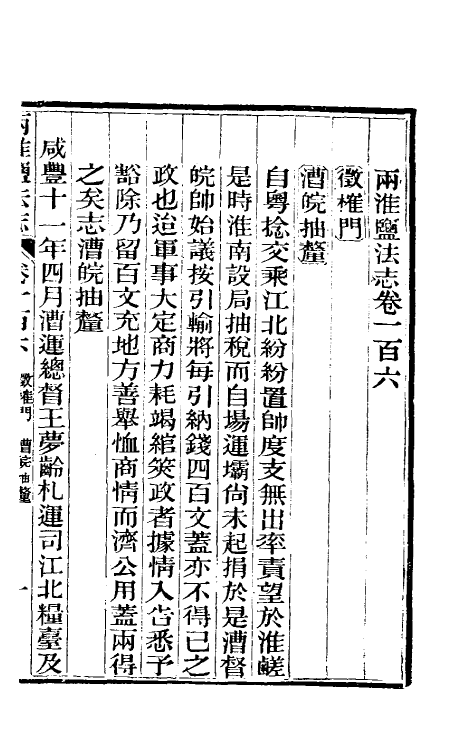 兩淮鹽法志卷一百六
徵榷門
漕皖抽釐
自粵捻交乘江北紛紛置帥度支無出率責望於淮鹺
是時淮南設局抽稅而自場運壩尚未起捐於是漕督
皖帥始議按引輸將每引納錢四百文蓋亦不得已之
政也迨軍事大定商力耗竭綰筴政者據情入告悉予
豁除乃留百文充地方善舉恤商情而濟公用蓋兩得
之矣志漕皖抽釐
咸豐十一年四月漕運總督王夢齡札運司江北糧臺及
兩淮鹽法志 卷一百六 徵榷門 漕皖抽釐 一